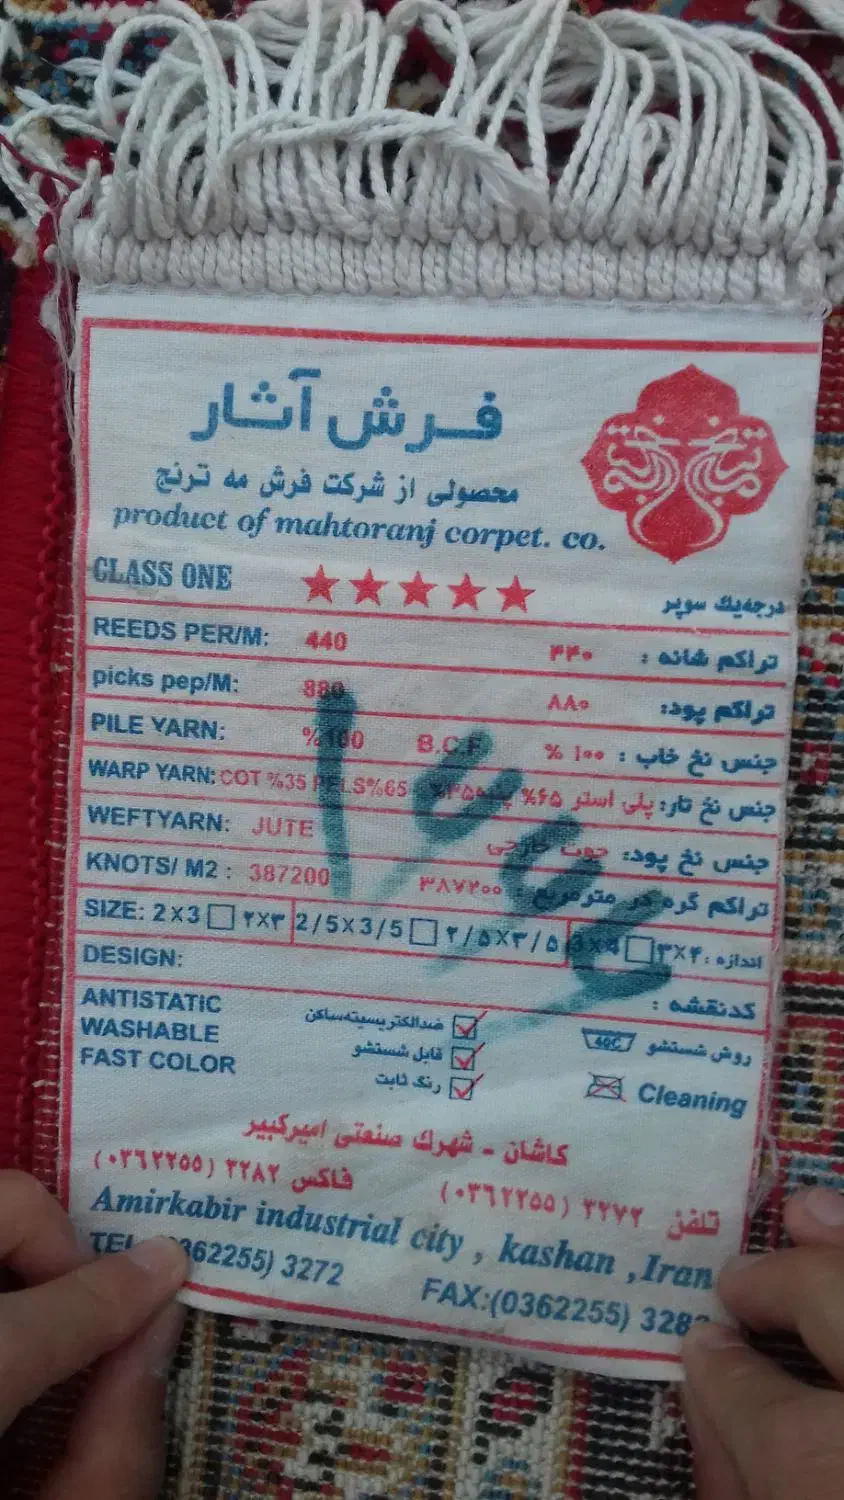 فرش آثار
محصولی از شرکت فرش مه ترنج
product of mahtoranj corpet. co.
CLASS ONE ★★★★★ درجه‌یك سوپر
REEDS PER/M: 440 ۴۴۰ تراکم شانه :
picks pep/M: 880 ۸۸۰ تراکم پود:
PILE YARN: %100 B.C.F % ۱۰۰ جنس نخ خاب :
WARP YARN: COT %35 PELS%65 جنس نخ تار: پلی استر ۶۵%
WEFTYARN: JUTE جنس نخ پود: جوت خارجی
KNOTS/ M2 : 387200 ۳۸۷۲۰۰ تراکم گره در مترمربع:
SIZE: 2X3 ۲X۳ 2/5X3/5 ۲/۵X۳/۵ 3X4 ۳X۴ اندازه :
DESIGN: کدنقشه :
ANTISTATIC ضدالکتریسیته‌ساکن
WASHABLE قابل شستشو
FAST COLOR رنگ ثابت
روش شستشو 40C
Cleaning
کاشان - شهرك صنعتی امیرکبیر
تلفن ۳۲۷۲ (۰۳۶۲۲۵۵) فاکس ۳۲۸۲ (۰۳۶۲۲۵۵)
Amirkabir industrial city , kashan ,Iran
TEL 0362255) 3272 FAX:(0362255) 328